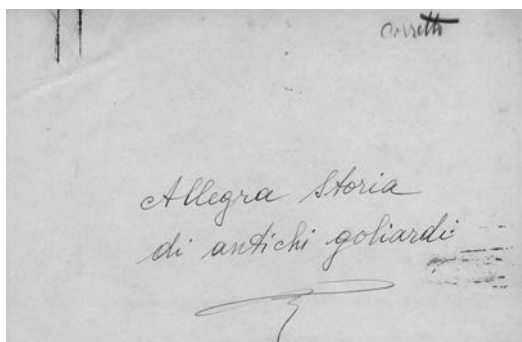 Corretto
Allegra Storia
di antichi goliardi